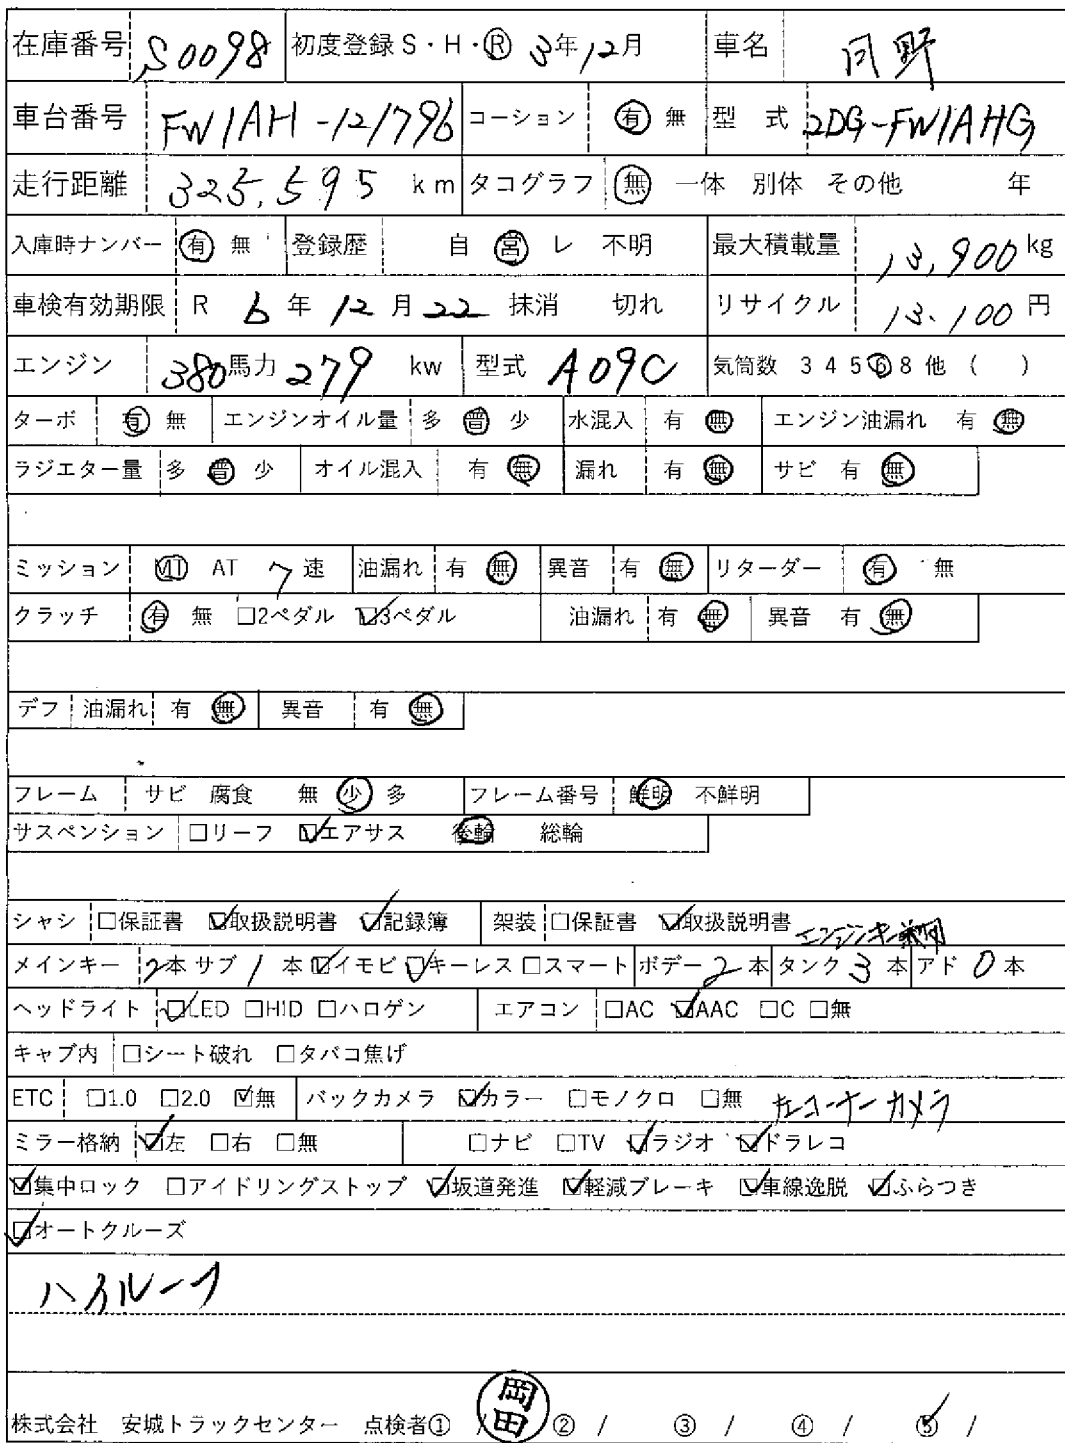 在庫番号 S0098 初度登録 S・H・Ⓡ 3年12月 車名 日野
車台番号 FW1AH-121796 コーション 有 無 型 式 2DG-FW1AHG
走行距離 325,595 km タコグラフ 無 一体 別体 その他 年
入庫時ナンバー 有 無 登録歴 自 営 レ 不明 最大積載量 13,900 kg
車検有効期限 R 6 年 12 月 22 抹消 切れ リサイクル 13.100 円
エンジン 380馬力 279 kw 型式 A09C 気筒数 3 4 5 6 8 他 ( )
ターボ 有 無 エンジンオイル量 多 普 少 水混入 有 無 エンジン油漏れ 有 無
ラジエター量 多 普 少 オイル混入 有 無 漏れ 有 無 サビ 有 無
ミッション MT AT 7 速 油漏れ 有 無 異音 有 無 リターダー 有 無
クラッチ 有 無 □2ペダル ☑3ペダル 油漏れ 有 無 異音 有 無
デフ 油漏れ 有 無 異音 有 無
フレーム サビ 腐食 無 少 多 フレーム番号 鮮明 不鮮明
サスペンション □リーフ ☑エアサス 後輪 総輪
シャシ □保証書 ☑取扱説明書 ☑記録簿 架装 □保証書 ☑取扱説明書
メインキー 2本 サブ 1 本 ☑イモビ ☑キーレス □スマート ボデー 2 本 タンク 3 本 アド 0 本
ヘッドライト ☑LED □HID □ハロゲン エアコン □AC ☑AAC □C □無
キャブ内 □シート破れ □タバコ焦げ
ETC □1.0 □2.0 ☑無 バックカメラ ☑カラー □モノクロ □無 左コーナーカメラ
ミラー格納 ☑左 □右 □無 □ナビ □TV ☑ラジオ ☑ドラレコ
☑集中ロック □アイドリングストップ ☑坂道発進 ☑軽減ブレーキ ☑車線逸脱 ☑ふらつき
☑オートクルーズ
ハイルーフ
株式会社 安城トラックセンター 点検者① / 岡田 ② / ③ / ④ / ⑤ /